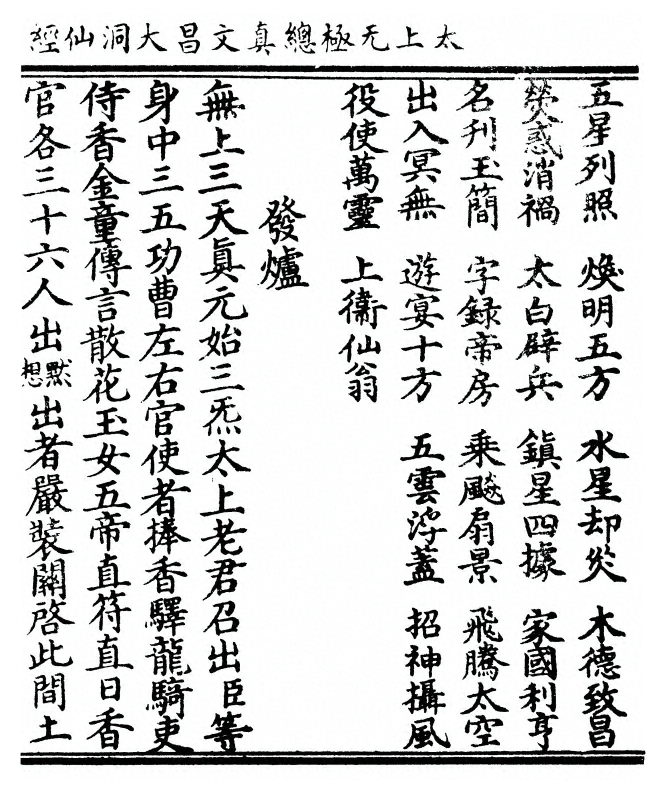 太上无極總真文昌大洞仙經
五星列照　煥明五方　水星却灾　木德致昌
熒惑消禍　太白辟兵　鎮星四據　家國利亨
名刋玉簡　字録帝房　乗飈扇景　飛騰太空
出入冥無　遊宴十方　五雲浮蓋　招神攝風
役使萬靈　上衞仙翁
發爐
無上三天眞元始三炁太上老君召出臣等
身中三五功曹左右官使者捧香驛龍騎吏
侍香金童傳言散花玉女五帝直符直日香
官各三十六人出默想出者嚴裝關啓此間土